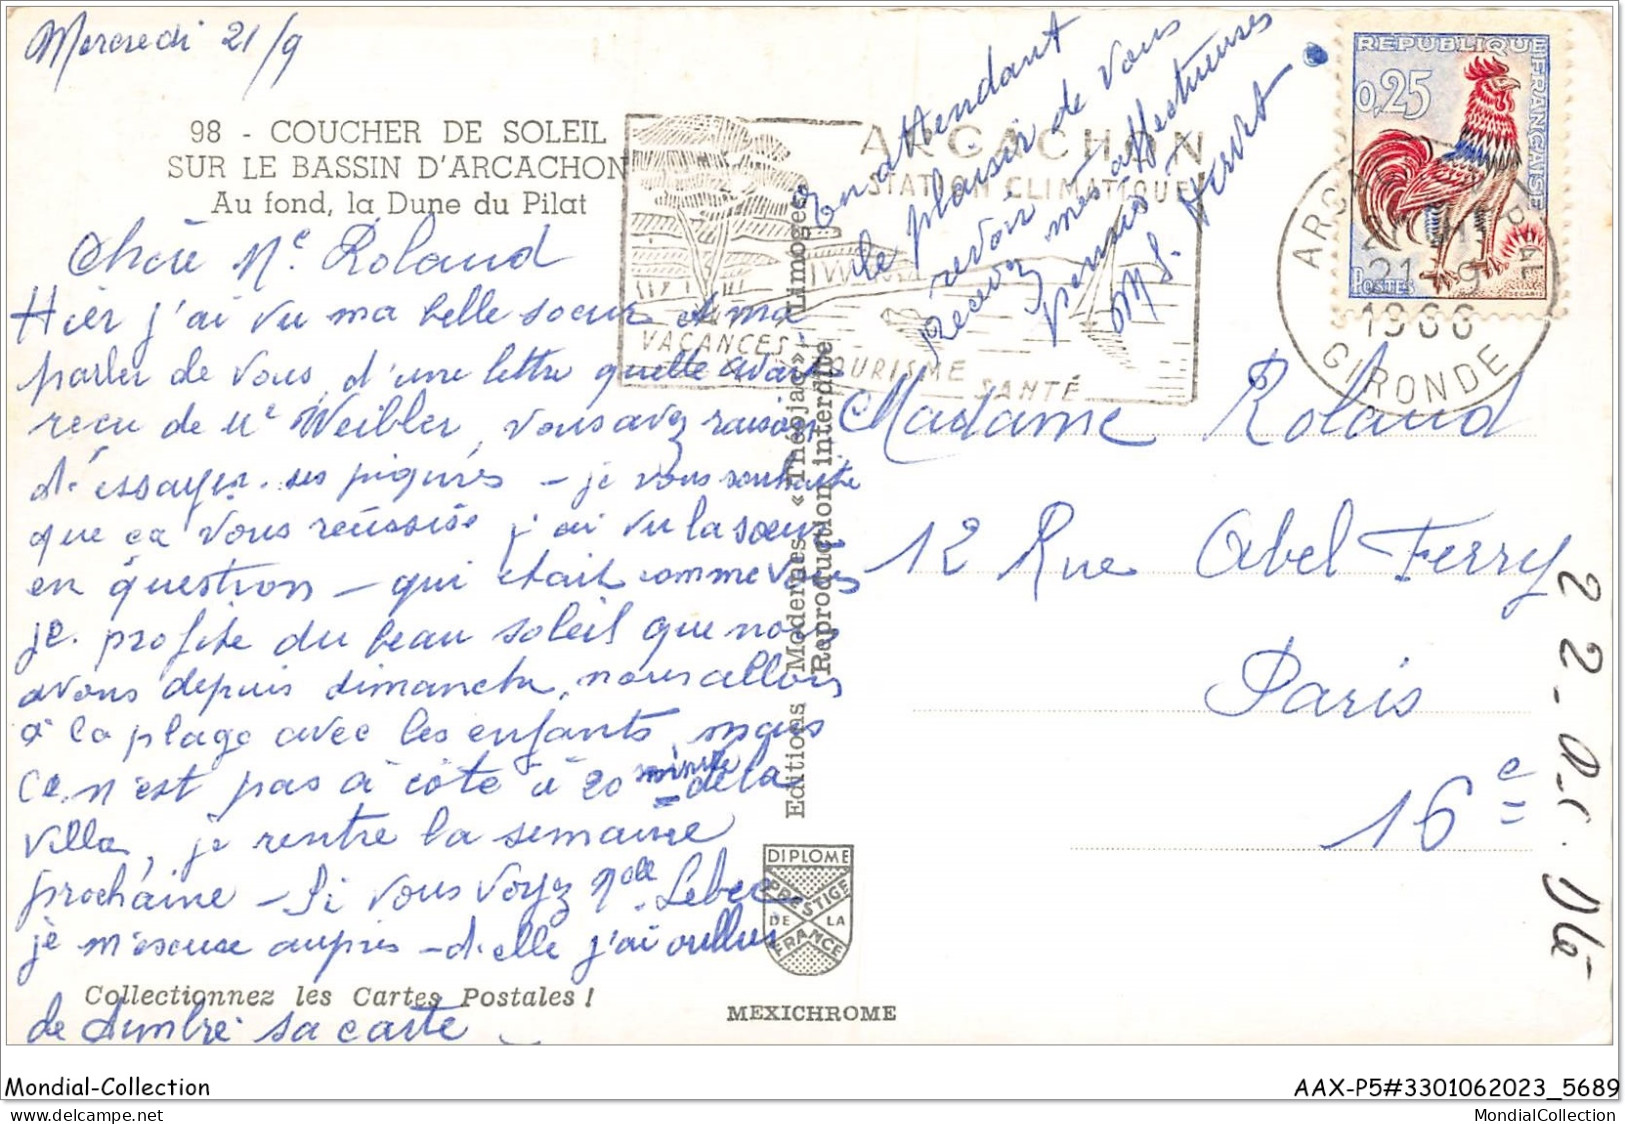 Mercredi 21/9
98 - COUCHER DE SOLEIL
SUR LE BASSIN D'ARCACHON
Au fond, la Dune du Pilat
Chère Me. Roland
Hier j'ai vu ma belle soeur et ma
parler de vous, d'une lettre quelle avait
reçu de Me Weibler, vous avez raison
d'essayer ses piqures - je vous souhaite
que ça vous réussisse j'ai vu la soeur
en question - qui était comme vous
je profite du beau soleil que nous
avons depuis dimanche, nous allons
à la plage avec les enfants, mais
ce n'est pas à côté à 20 minute de la
villa, je rentre la semaine
prochaine - Si vous voyez Melle Lebec
je m'escuse auprès - d'elle j'ai oublié
de timbré sa carte -
Collectionnez les Cartes Postales !
En attendant
le plaisir de vous
revoir
recevez mes affectueuses
pensées
M S.
ARCACHON
STATION CLIMATIQUE
VACANCES TOURISME SANTÉ
REPUBLIQUE FRANÇAISE
0,25
POSTES
DECARIS
ARCACHON PPAL
21 - 9
1966
GIRONDE
Editions Modernes «Théojac» Limoges
Reproduction interdite
Madame Roland
12 Rue Abel Ferry
Paris
16e
DIPLOME
PRESTIGE
DE LA
FRANCE
MEXICHROME
Mondial-Collection
AAX-P5#3301062023_5689
MondialCollection